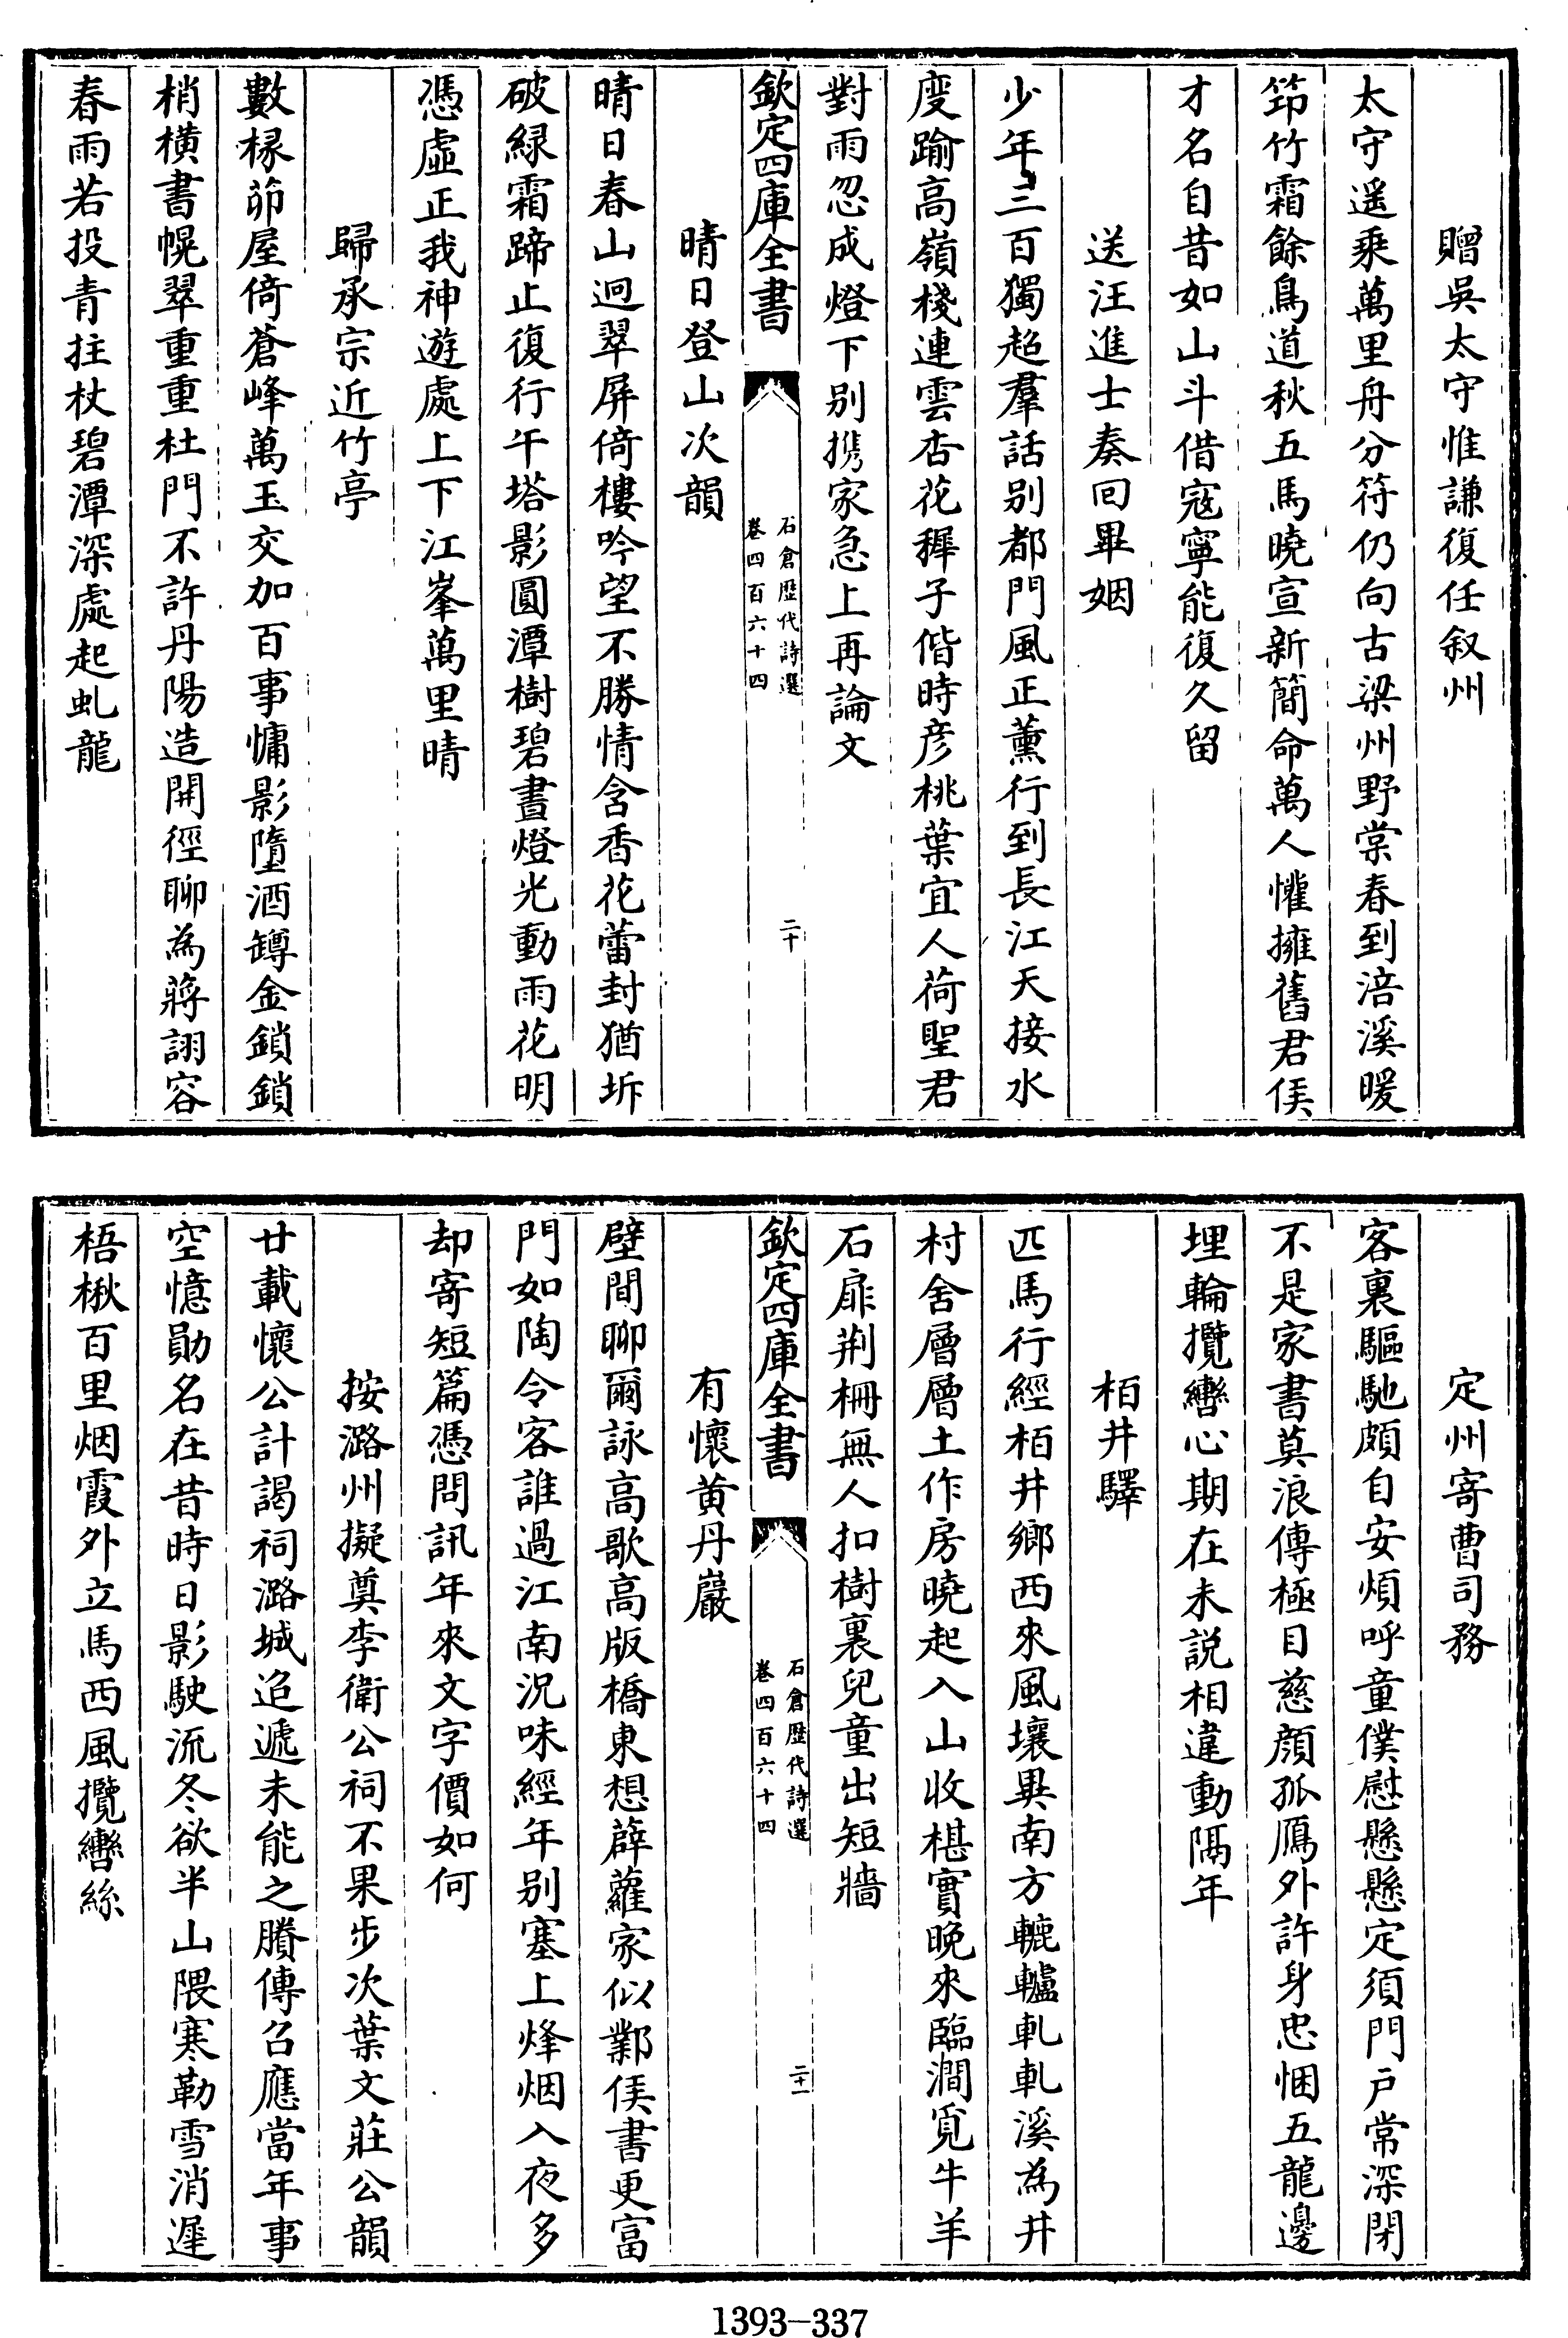 贈吳太守惟謙復任叙州
太守遥乘萬里舟分符仍向古梁州野棠春到涪溪暖
笻竹霜餘鳥道秋五馬曉宣新簡命萬人懽擁舊君侯
才名自昔如山斗借寇寧能復久留
送汪進士奏回畢姻
少年三百獨超羣話别都門風正薰行到長江天接水
度踰高嶺棧連雲杏花穉子偕時彦桃葉宜人荷聖君
對雨忽成燈下别携家急上再論文
欽定四庫全書
石倉歴代詩選
卷四百六十四
二十
晴日登山次韻
晴日春山迥翠屏倚樓吟望不勝情含香花蕾封猶坼
破緑霜蹄止復行午塔影圓潭樹碧晝燈光動雨花明
憑虚正我神遊處上下江峯萬里晴
歸承宗近竹亭
數椽茆屋倚蒼峰萬玉交加百事慵影墮酒罇金鎖鎖
梢横書幌翠重重杜門不許丹陽造開徑聊為蔣詡容
春雨若投青拄杖碧潭深處起虬龍
定州寄曹司務
客裏驅馳頗自安煩呼童僕慰懸懸定須門户常深閉
不是家書莫浪傳極目慈顔孤鴈外許身忠悃五龍邊
埋輪攬轡心期在未説相違動隔年
栢井驛
匹馬行經栢井鄉西來風壤異南方轆轤軋軋溪為井
村舍層層土作房曉起入山收椹實晚來臨澗覓牛羊
石扉荆柵無人扣樹裏兒童出短牆
欽定四庫全書
石倉歴代詩選
卷四百六十四
二十一
有懷黄丹巖
壁間聊爾詠高歌高版橋東想薜蘿家似鄴侯書更富
門如陶令客誰過江南況味經年别塞上烽烟入夜多
却寄短篇憑問訊年來文字價如何
按潞州擬奠李衛公祠不果步次葉文莊公韻
廿載懷公計謁祠潞城迢遞未能之賸傳召應當年事
空憶勛名在昔時日影駛流冬欲半山隈寒勒雪消遲
梧楸百里烟霞外立馬西風攬轡絲
1393-337